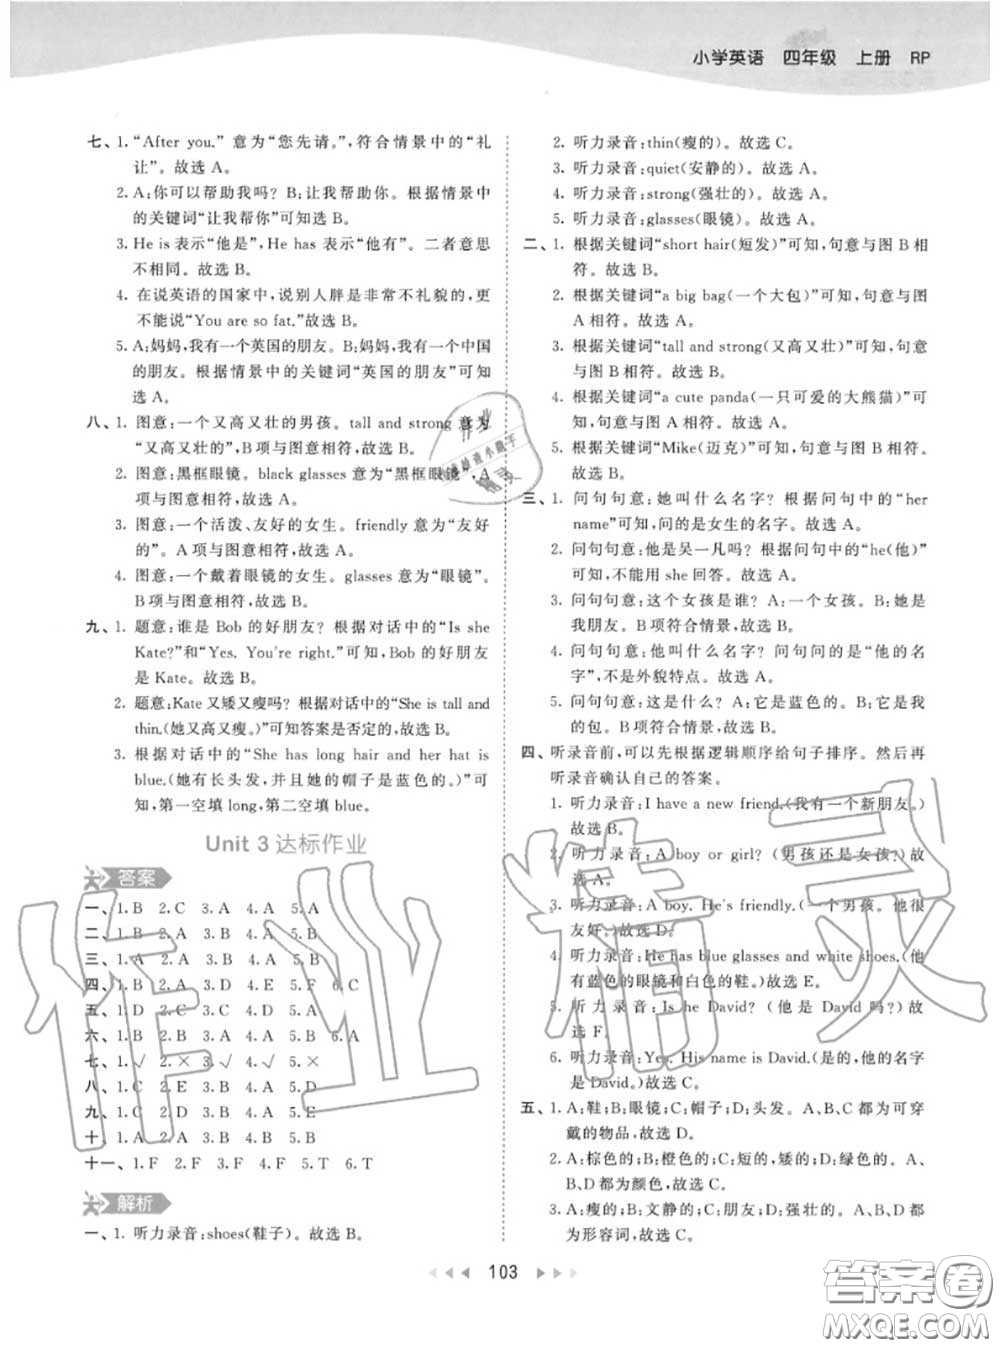 小学英语 四年级 上册 RP
七、1. “After you.” 意为“您先请。”,符合情景中的“礼
让”。故选 A。
2. A:你可以帮助我吗? B:让我帮助你。根据情景中
的关键词“让我帮你”可知选 B。
3. He is 表示“他是”,He has 表示“他有”。二者意思
不相同。故选 B。
4. 在说英语的国家中,说别人胖是非常不礼貌的,更
不能说“You are so fat.”故选 B。
5. A:妈妈,我有一个英国的朋友。B:妈妈,我有一个中国
的朋友。根据情景中的关键词“英国的朋友”可知
选 A。
八、1. 图意:一个又高又壮的男孩。tall and strong 意为
“又高又壮的”,B项与图意相符,故选 B。
2. 图意:黑框眼镜。black glasses 意为“黑框眼镜”,A
项与图意相符,故选 A。
3. 图意:一个活泼、友好的女生。friendly 意为“友好
的”。A 项与图意相符,故选 A。
4. 图意:一个戴着眼镜的女生。glasses 意为“眼镜”。
B项与图意相符,故选 B。
九、1. 题意:谁是 Bob 的好朋友? 根据对话中的“Is she
Kate?”和“Yes. You're right.”可知,Bob 的好朋友
是 Kate。故选 B。
2. 题意:Kate 又矮又瘦吗? 根据对话中的“She is tall and
thin.(她又高又瘦。)”可知答案是否定的,故选 B。
3. 根据对话中的“She has long hair and her hat is
blue.(她有长头发,并且她的帽子是蓝色的。)”可
知,第一空填 long,第二空填 blue。
Unit 3 达标作业
答案
一、1. B 2. C 3. A 4. A 5. A
二、1. B 2. A 3. B 4. A 5. B
三、1. A 2. A 3. B 4. A 5. B
四、1. B 2. A 3. D 4. E 5. F 6. C
五、1. D 2. C 3. C 4. D 5. A
六、1. B 2. B 3. A 4. A 5. B 6. A
七、1. √ 2. × 3. √ 4. √ 5. ×
八、1. C 2. E 3. B 4. A 5. D
九、1. C 2. D 3. B 4. A 5. E
十、1. A 2. A 3. B 4. A 5. B
十一、1. F 2. F 3. F 4. F 5. T 6. T
解析
一、1. 听力录音:shoes(鞋子)。故选 B。
2. 听力录音:thin(瘦的)。故选 C。
3. 听力录音:quiet(安静的)。故选 A。
4. 听力录音:strong(强壮的)。故选 A。
5. 听力录音:glasses(眼镜)。故选 A。
二、1. 根据关键词“short hair(短发)”可知,句意与图 B相
符。故选 B。
2. 根据关键词“a big bag(一个大包)”可知,句意与图
A 相符。故选 A。
3. 根据关键词“tall and strong(又高又壮)”可知,句意
与图 B 相符。故选 B。
4. 根据关键词“a cute panda(一只可爱的大熊猫)”可
知,句意与图 A 相符。故选 A。
5. 根据关键词“Mike(迈克)”可知,句意与图 B 相符。
故选 B。
三、1. 问句句意:她叫什么名字? 根据问句中的“her
name”可知,问的是女生的名字。故选 A。
2. 问句句意:他是吴一凡吗? 根据问句中的“he(他)”
可知,不能用 she 回答。故选 A。
3. 问句句意:这个女孩是谁? A:一个女孩。B:她是
我朋友。B项符合情景,故选 B。
4. 问句句意:他叫什么名字? 问句问的是“他的名
字”,不是外貌特点。故选 A。
5. 问句句意:这是什么? A:它是蓝色的。B:它是我
的包。B项符合情景,故选 B。
四、听录音前,可以先根据逻辑顺序给句子排序。然后再
听录音确认自己的答案。
1. 听力录音:I have a new friend.(我有一个新朋友。)
故选 B。
2. 听力录音:A boy or girl? (男孩还是女孩?)故
选 A。
3. 听力录音:A boy. He's friendly.(一个男孩。他很
友好。)故选 D。
4. 听力录音:He has blue glasses and white shoes.(他
有蓝色的眼镜和白色的鞋。)故选 E。
5. 听力录音:Is he David? (他是 David 吗?)故
选 F。
6. 听力录音:Yes. His name is David.(是的,他的名字
是 David。)故选 C。
五、1. A:鞋;B:眼镜;C:帽子;D:头发。A、B、C 都为可穿
戴的物品,故选 D。
2. A:棕色的;B:橙色的;C:短的,矮的;D:绿色的。A、
B、D 都为颜色。故选 C。
3. A:瘦的;B:文静的;C:打鼓;D:强壮的。A、B、D 都
为形容词,故选 C。
103
作业精灵
答案圈
MXQE.COM